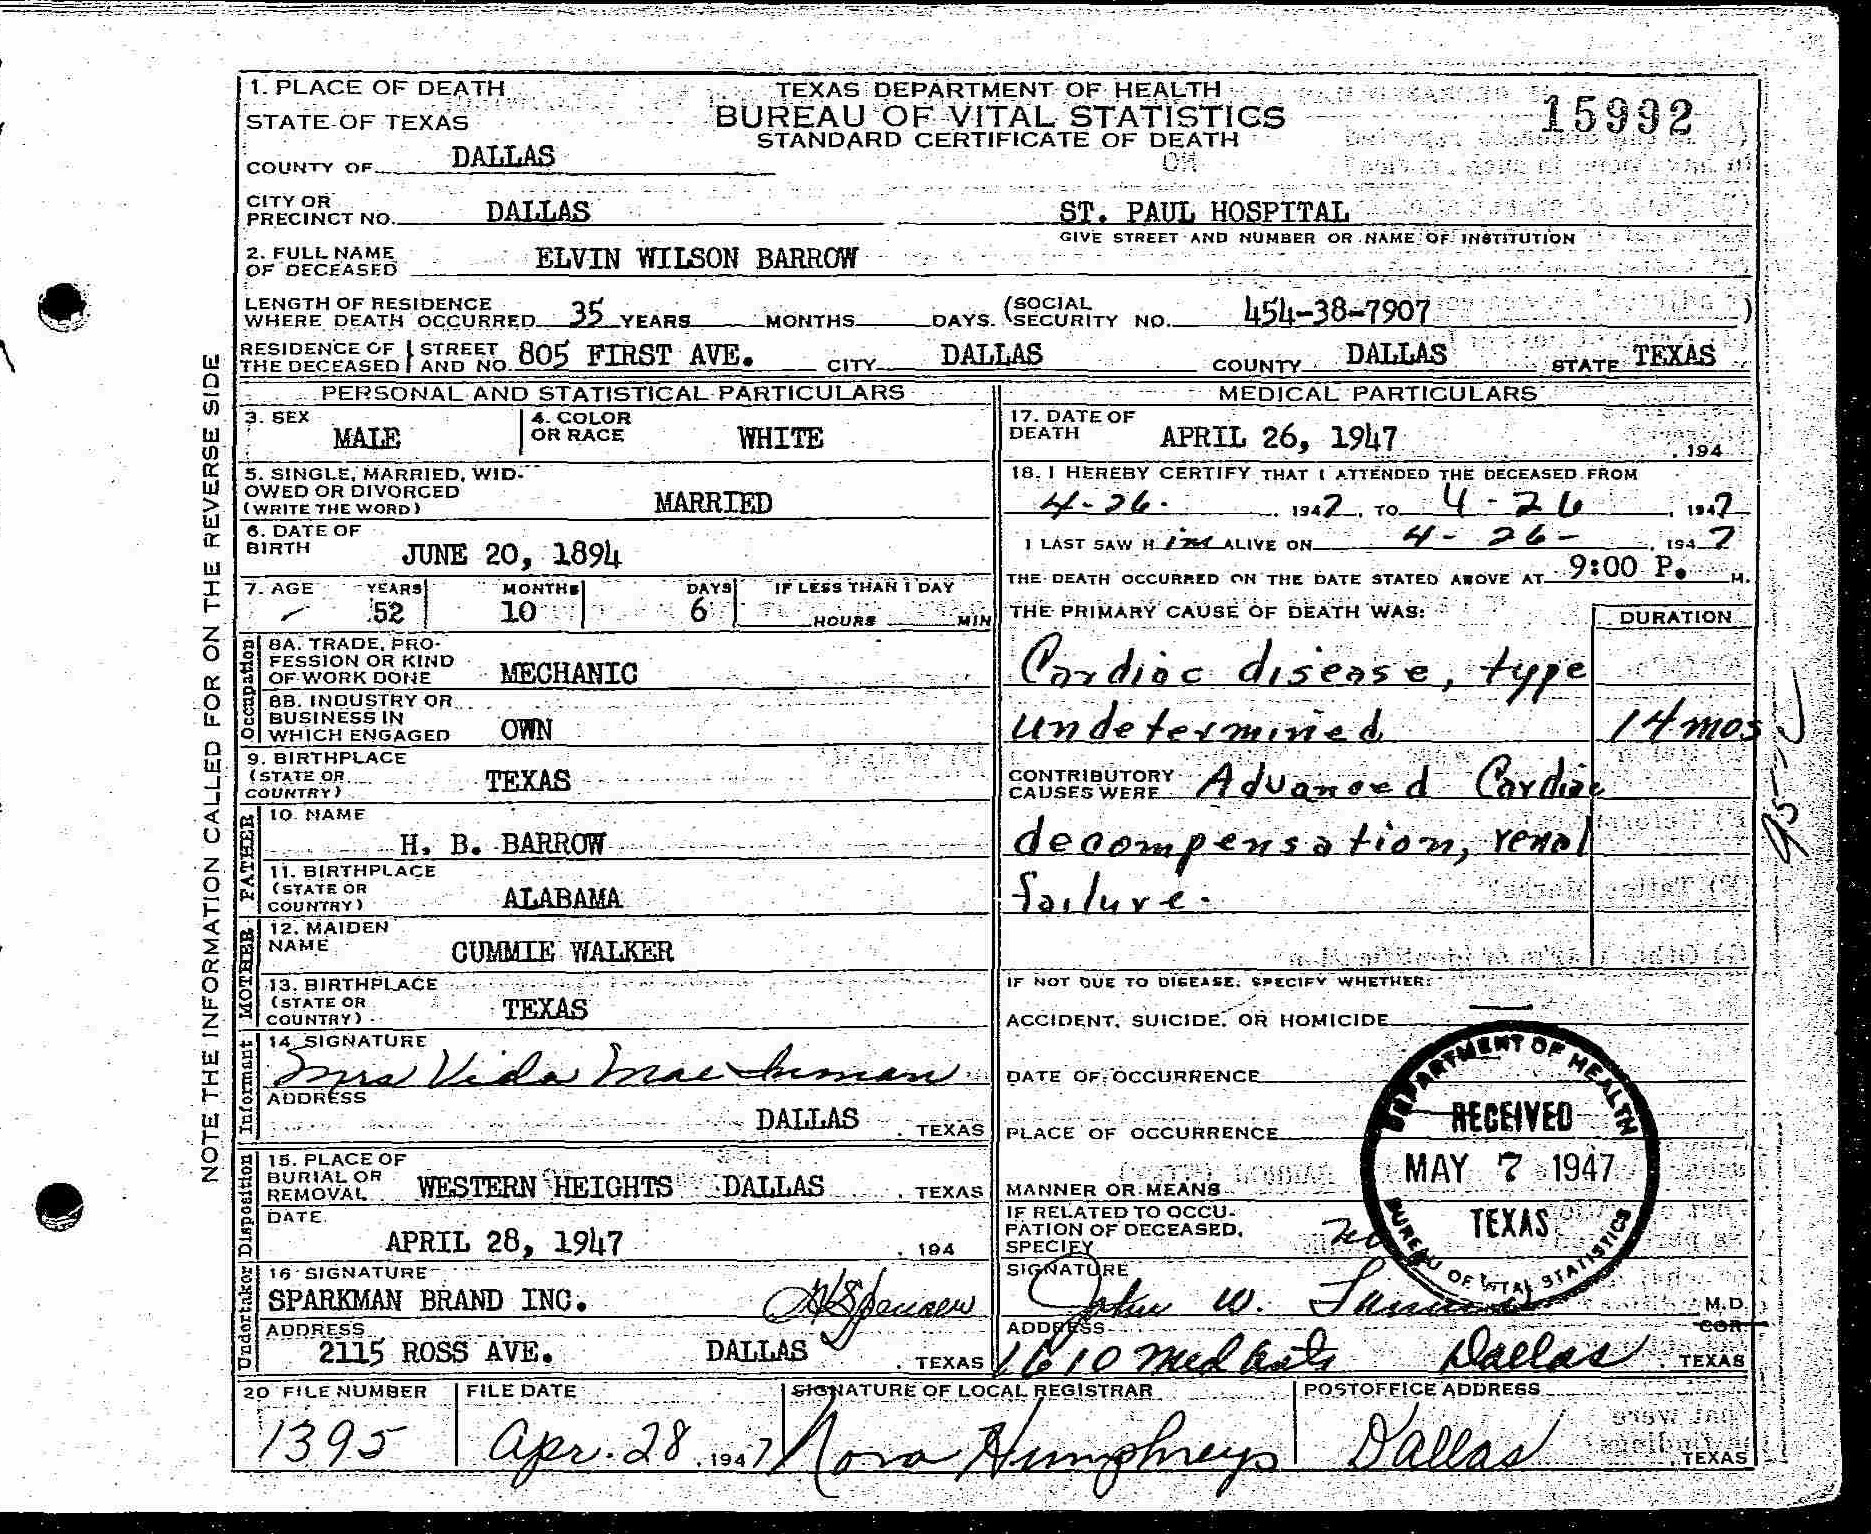 1. PLACE OF DEATH
STATE OF TEXAS
TEXAS DEPARTMENT OF HEALTH
BUREAU OF VITAL STATISTICS
STANDARD CERTIFICATE OF DEATH
15992
COUNTY OF DALLAS
CITY OR PRECINCT NO. DALLAS ST. PAUL HOSPITAL
GIVE STREET AND NUMBER OR NAME OF INSTITUTION
2. FULL NAME OF DECEASED ELVIN WILSON BARROW
LENGTH OF RESIDENCE WHERE DEATH OCCURRED 35 YEARS MONTHS DAYS. (SOCIAL SECURITY NO. 454-38-7907 )
RESIDENCE OF THE DECEASED STREET AND NO. 805 FIRST AVE. CITY DALLAS COUNTY DALLAS STATE TEXAS
NOTE THE INFORMATION CALLED FOR ON THE REVERSE SIDE
PERSONAL AND STATISTICAL PARTICULARS
3. SEX MALE
4. COLOR OR RACE WHITE
5. SINGLE, MARRIED, WID-
OWED OR DIVORCED
(WRITE THE WORD) MARRIED
6. DATE OF BIRTH JUNE 20, 1894
7. AGE YEARS MONTHS DAYS IF LESS THAN 1 DAY
52 10 6 HOURS MIN
Occupation
8A. TRADE, PRO-
FESSION OR KIND
OF WORK DONE MECHANIC
8B. INDUSTRY OR
BUSINESS IN
WHICH ENGAGED OWN
9. BIRTHPLACE
(STATE OR
COUNTRY) TEXAS
FATHER
10. NAME
H. B. BARROW
11. BIRTHPLACE
(STATE OR
COUNTRY) ALABAMA
MOTHER
12. MAIDEN
NAME CUMMIE WALKER
13. BIRTHPLACE
(STATE OR
COUNTRY) TEXAS
Informant
14. SIGNATURE
Mrs Vida Mae Inman
ADDRESS
DALLAS , TEXAS
Disposition
15. PLACE OF
BURIAL OR
REMOVAL WESTERN HEIGHTS DALLAS , TEXAS
DATE
APRIL 28, 1947 , 194
Undertaker
16 SIGNATURE
SPARKMAN BRAND INC.
ADDRESS
2115 ROSS AVE. DALLAS , TEXAS
MEDICAL PARTICULARS
17. DATE OF DEATH APRIL 26, 1947 , 194
18. I HEREBY CERTIFY THAT I ATTENDED THE DECEASED FROM
4-26- 1947, TO 4-26 , 1947
I LAST SAW H im ALIVE ON 4-26- , 1947
THE DEATH OCCURRED ON THE DATE STATED ABOVE AT 9:00 P. M.
THE PRIMARY CAUSE OF DEATH WAS: DURATION
Cardiac disease, type
undetermined 14 mos
CONTRIBUTORY
CAUSES WERE Advanced Cardiac
decompensation, renal
failure.
95-c
IF NOT DUE TO DISEASE, SPECIFY WHETHER:
ACCIDENT, SUICIDE, OR HOMICIDE —
DATE OF OCCURRENCE
PLACE OF OCCURRENCE
MANNER OR MEANS
IF RELATED TO OCCU-
PATION OF DECEASED,
SPECIFY no
DEPARTMENT OF HEALTH
RECEIVED
MAY 7 1947
TEXAS
BUREAU OF VITAL STATISTICS
SIGNATURE
John W. M.D.
COR
ADDRESS
1610 Med Arts Dallas , TEXAS
20 FILE NUMBER FILE DATE SIGNATURE OF LOCAL REGISTRAR POSTOFFICE ADDRESS
1395 Apr. 28, 1947 Nora Humphreys Dallas , TEXAS